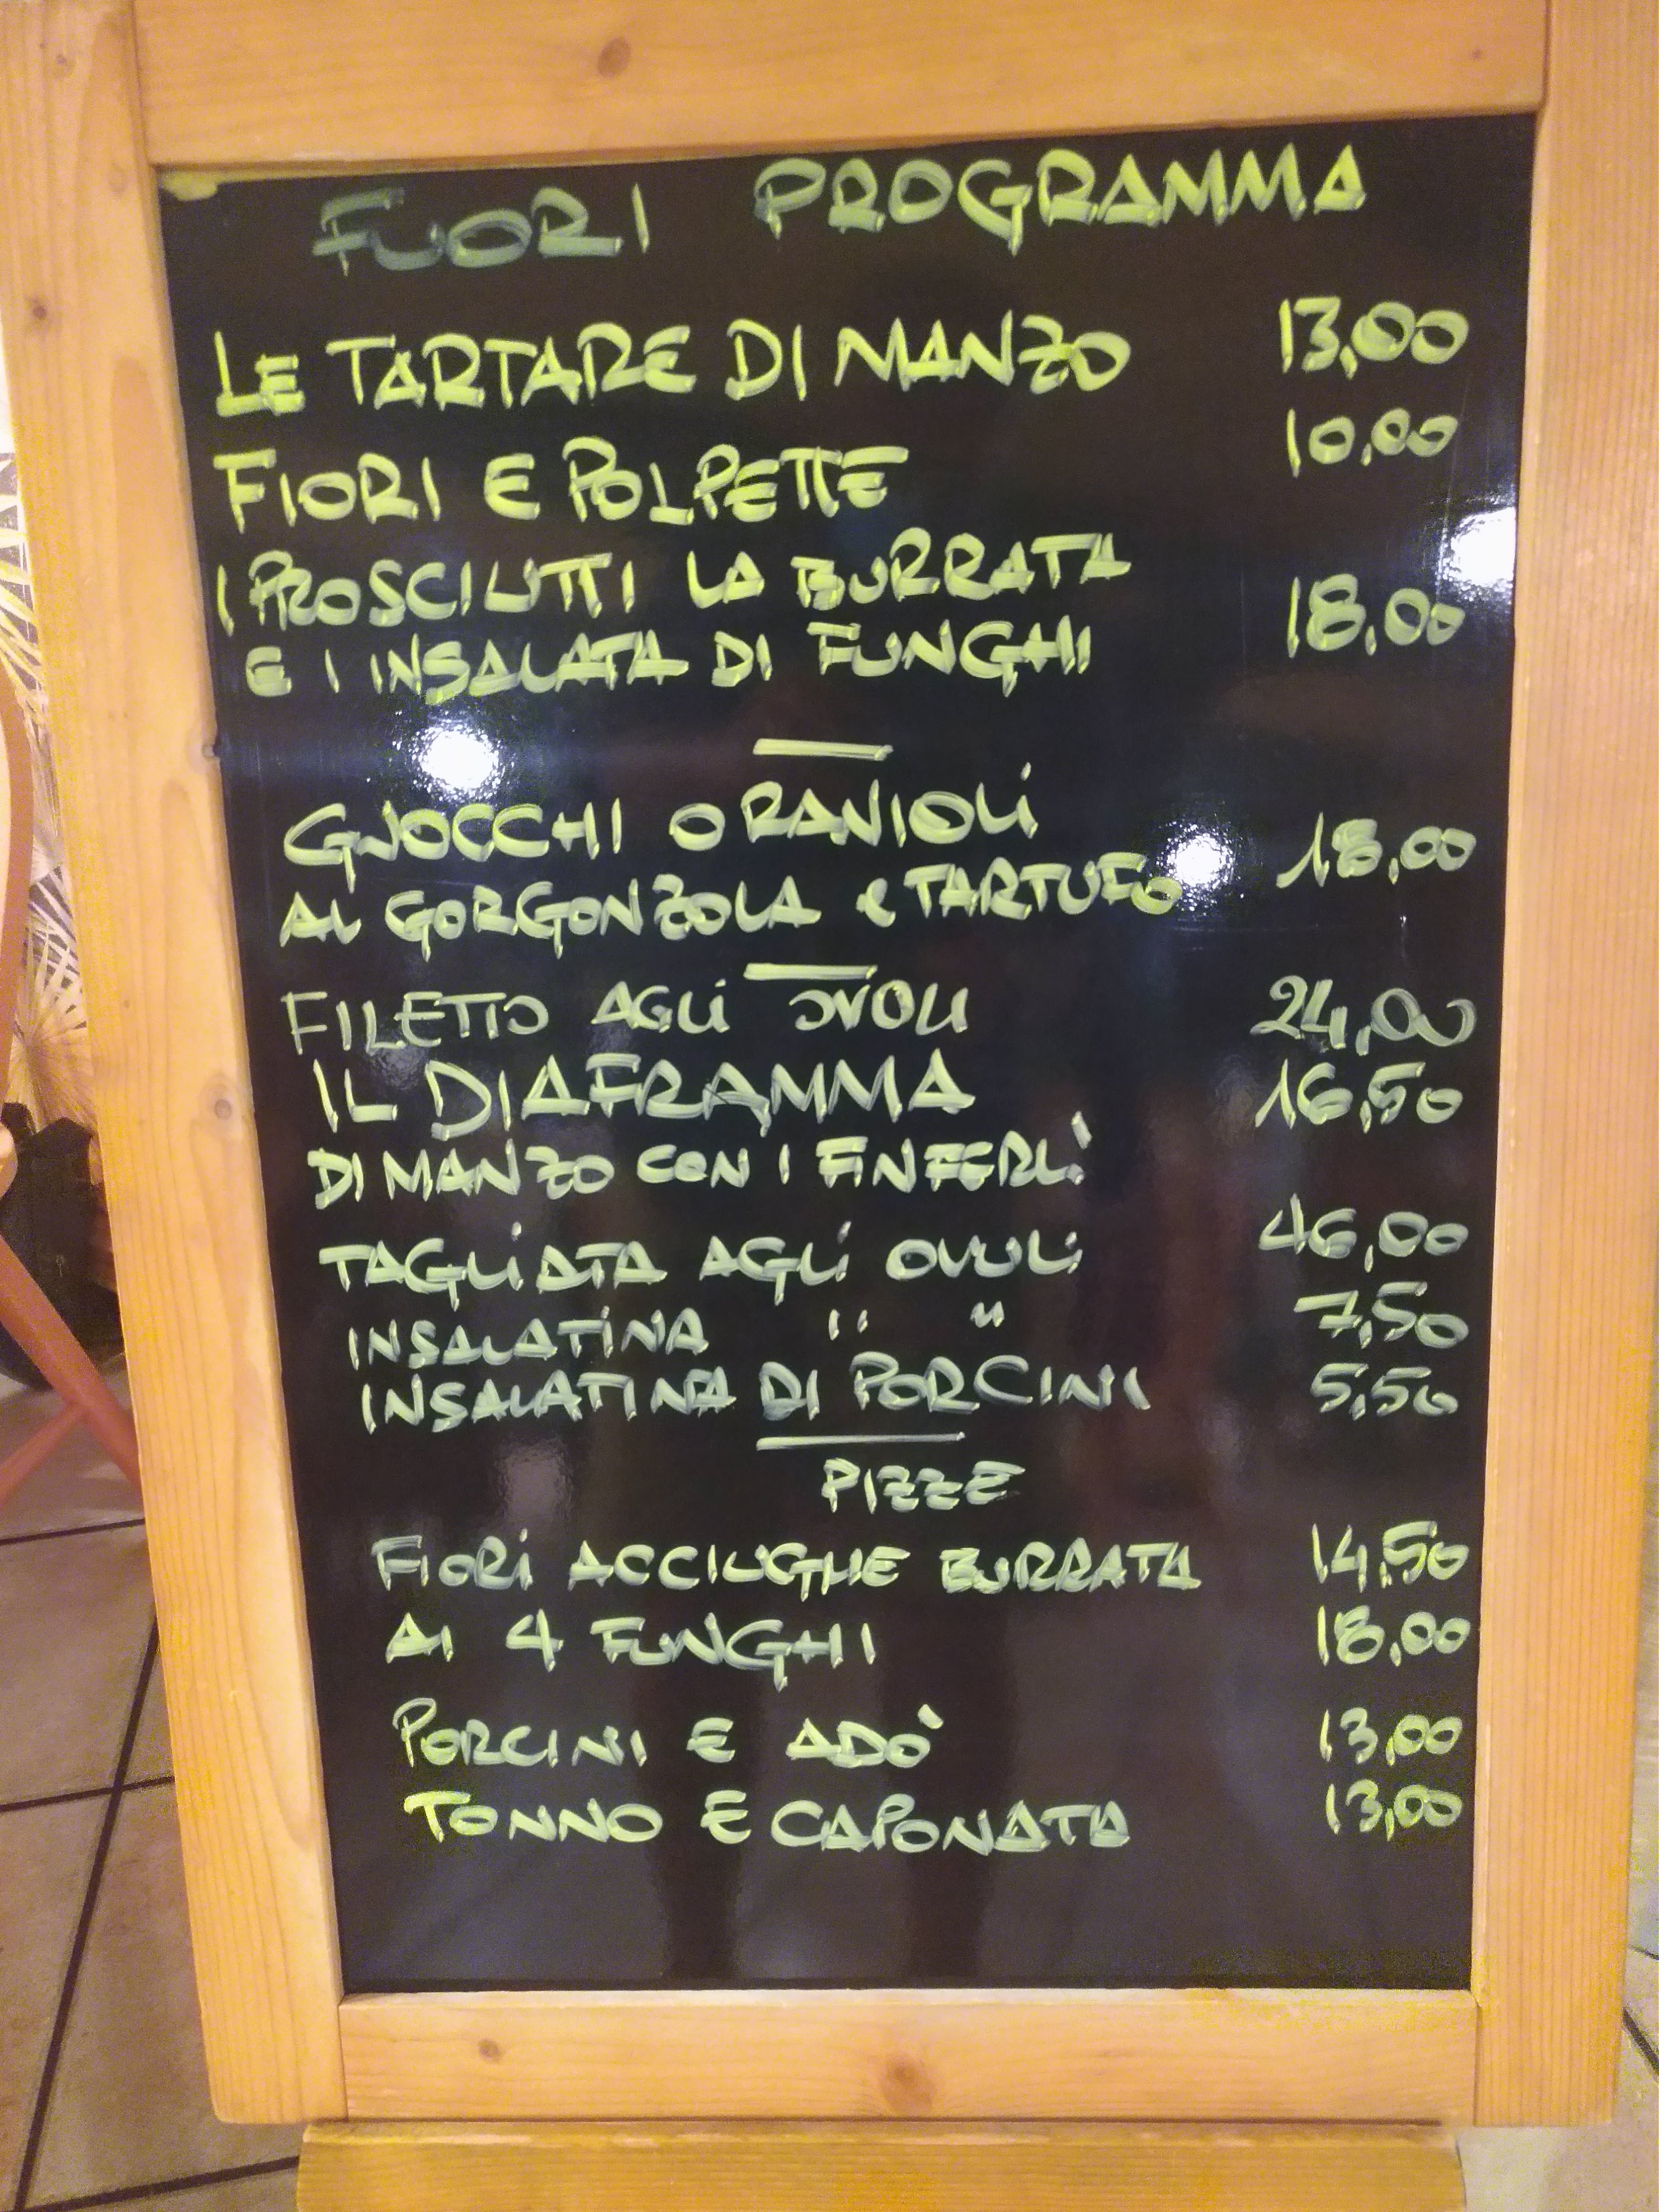 FUORI PROGRAMMA
LE TARTARE DI MANZO 13,00
FIORI E POLPETTE 10,00
I PROSCIUTTI LA BURRATA
E I INSALATA DI FUNGHI 18,00
GNOCCHI O RAVIOLI
AL GORGONZOLA e TARTUFO 18,00
FILETTO AGLI OVOLI 24,00
IL DIAFRAMMA 16,50
DI MANZO CON I FINFERLI
TAGLIATA AGLI OVULI 46,00
INSALATINA " " 7,50
INSALATINA DI PORCINI 5,50
PIZZE
FIORI ACCIUGHE BURRATA 14,50
AI 4 FUNGHI 18,00
PORCINI E ADÒ 13,00
TONNO E CAPONATA 13,00